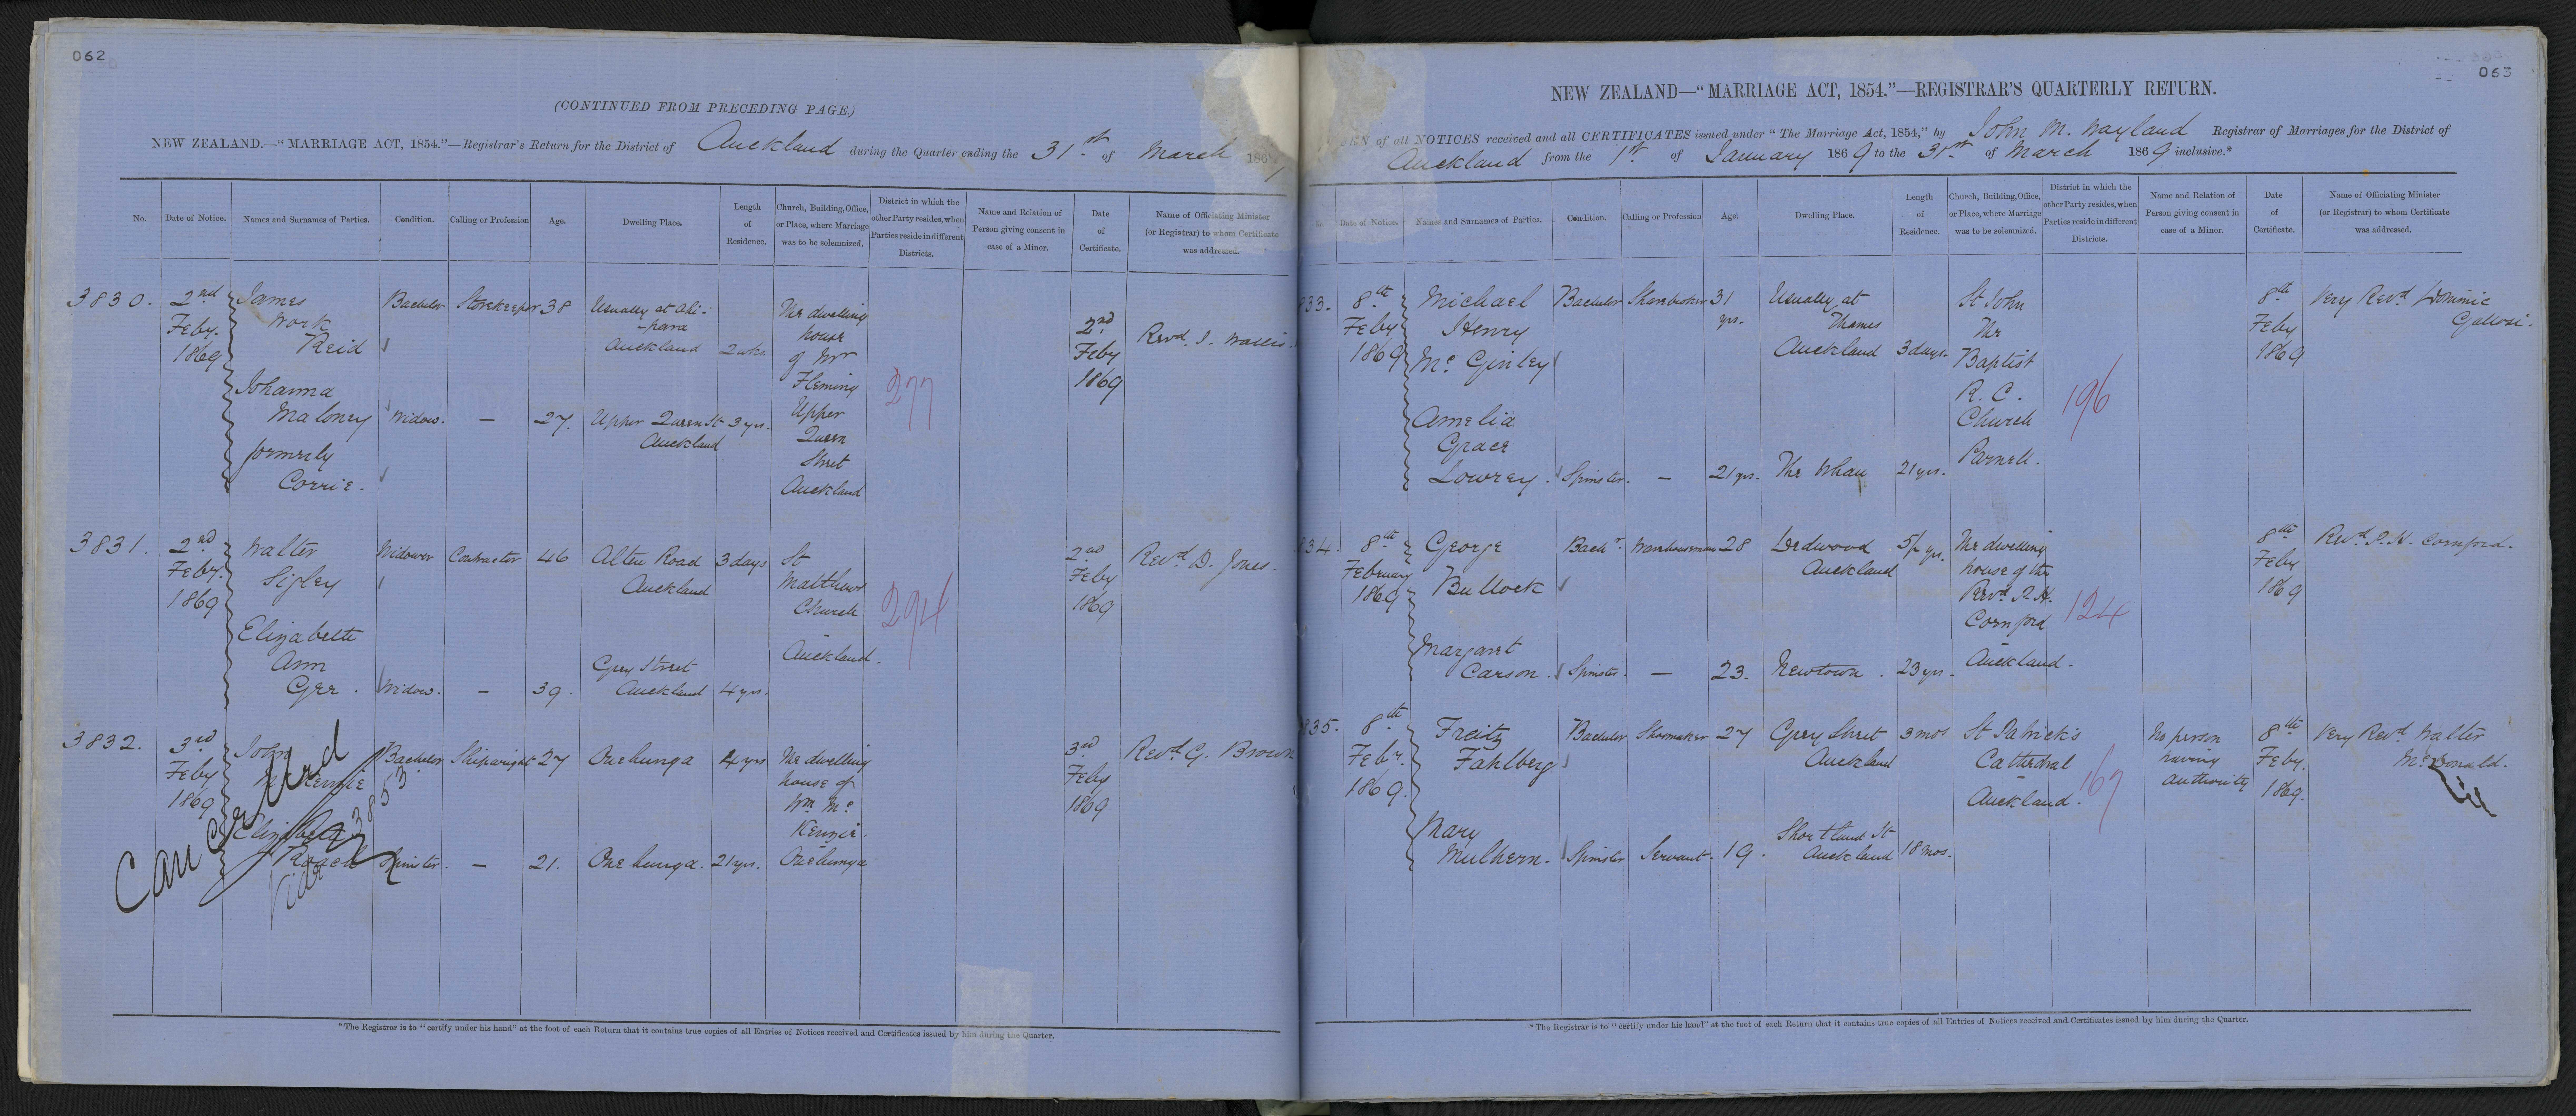 062
(CONTINUED FROM PRECEDING PAGE.)
NEW ZEALAND.—"MARRIAGE ACT, 1854."—Registrar's Return for the District of Auckland during the Quarter ending the 31st of March 186
No. Date of Notice. Names and Surnames of Parties. Condition. Calling or Profession Age. Dwelling Place. Length of Residence. Church, Building, Office, or Place, where Marriage was to be solemnized. District in which the other Party resides, when Parties reside in different Districts. Name and Relation of Person giving consent in case of a Minor. Date of Certificate. Name of Officiating Minister (or Registrar) to whom Certificate was addressed.
3830. 2nd Feby. 1869
James Work Reid Bachelor Storekeeper 38 Usually at Ahi-para Auckland 2 wks.
Johanna Maloney formerly Corrie. Widow. — 27. Upper Queen St Auckland 3 yrs.
The dwelling house of Mr Fleming Upper Queen Street Auckland
277
2nd Feby 1869
Revd. J. Wallis.
3831. 2nd Feby. 1869
Walter Sigley Widower Contractor 46 Alten Road Auckland 3 days
Elizabeth Ann Gee. Widow. — 39. Grey Street Auckland 4 yrs.
St Matthews Church Auckland.
294
2nd Feby 1869
Revd D. Jones.
3832. 3rd Feby 1869
John McKenzie Bachelor Shipwright 27 Onehunga 4 yrs
Elizabeth Roach Spinster. — 21. Onehunga. 21 yrs.
The dwelling house of Wm McKenzie. Onehunga
3rd Feby 1869
Revd G. Brown
Cancelled
Vide 3853
* The Registrar is to "certify under his hand" at the foot of each Return that it contains true copies of all Entries of Notices received and Certificates issued by him during the Quarter.
063
NEW ZEALAND—"MARRIAGE ACT, 1854."—REGISTRAR'S QUARTERLY RETURN.
of all NOTICES received and all CERTIFICATES issued under "The Marriage Act, 1854," by John M. Wayland Registrar of Marriages for the District of
Auckland from the 1st of January 1869 to the 31st of March 1869 inclusive.*
Date of Notice. Names and Surnames of Parties. Condition. Calling or Profession Age. Dwelling Place. Length of Residence. Church, Building, Office, or Place, where Marriage was to be solemnized. District in which the other Party resides, when Parties reside in different Districts. Name and Relation of Person giving consent in case of a Minor. Date of Certificate. Name of Officiating Minister (or Registrar) to whom Certificate was addressed.
833. 8th Feby 1869
Michael Henry McGinley Bachelor Sharebroker 31 yrs. Usually at Thames Auckland 3 days.
Amelia Grace Lowrey. Spinster. — 21 yrs. The Whau 21 yrs.
St John The Baptist R. C. Church Parnell.
196
8th Feby 1869
Very Revd Dominic Galloni.
834. 8th February 1869
George Bullock Bachr. Warehouseman 28 Dedwood Auckland
Margaret Carson. Spinster. — 23. Newtown. 23 yrs.
The dwelling house of the Revd P. H. Cornford Auckland.
124
8th Feby 1869
Revd P. H. Cornford.
835. 8th Feby. 1869.
Freitz Fahlberg Bachelor Shoemaker 27 Grey Street Auckland 3 mos
Mary Mulhern. Spinster Servant. 19. Shortland St Auckland 18 mos.
St Patrick's Cathedral Auckland.
167
No person having authority
8th Feby. 1869.
Very Revd Walter McDonald.
* The Registrar is to "certify under his hand" at the foot of each Return that it contains true copies of all Entries of Notices received and Certificates issued by him during the Quarter.